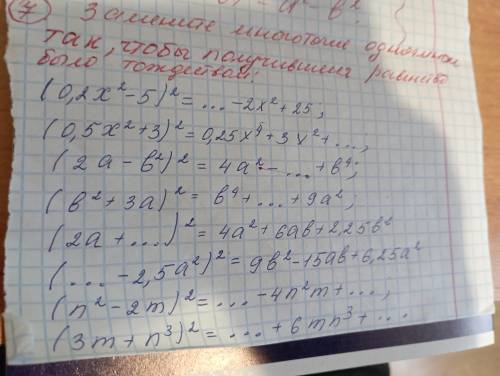 7 Замените многоточие одночленом
так, чтобы получившееся равенство
было тождеством:
(0,2x²-5)² = ... -2x² + 25;
(0,5x²+3)² = 0,25x⁴ + 3x² + ...;
(2a - b²)² = 4a² - ... + b⁴;
(b² + 3a)² = b⁴ + ... + 9a²;
(2a + ...)² = 4a² + 6ab + 2,25b²
(... - 2,5a²)² = 9b² - 15ab + 6,25a²
(n² - 2m)² = ... - 4n²m + ...;
(3m + n³)² = ... + 6mn³ + ...